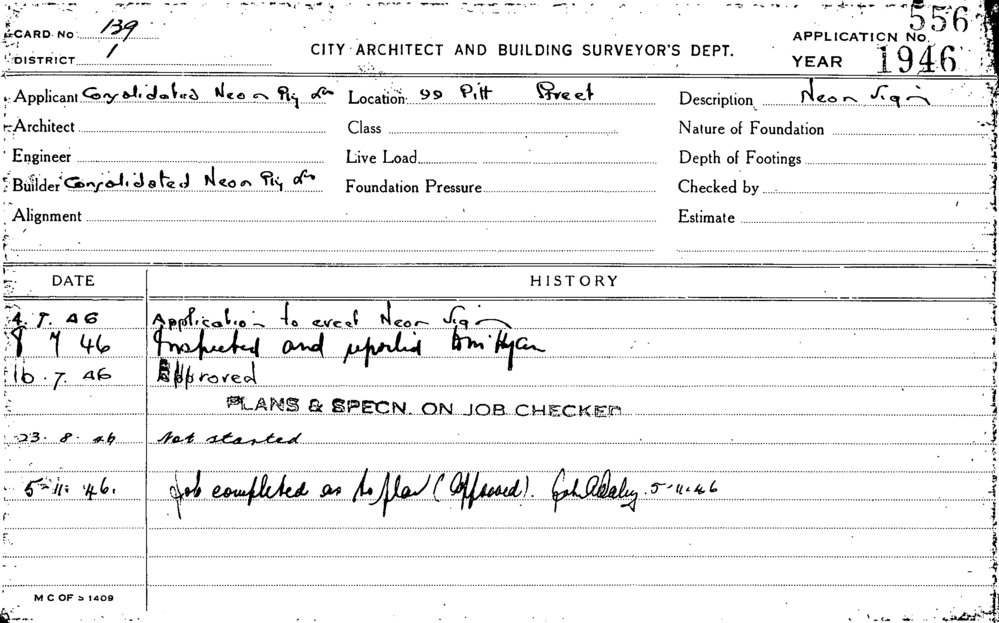 CARD No 139
556
APPLICATION No.
CITY ARCHITECT AND BUILDING SURVEYOR'S DEPT.
DISTRICT 1
YEAR 1946
Applicant Consolidated Neon Pty Ltd Location 99 Pitt Street Description Neon Sign
Architect Class Nature of Foundation
Engineer Live Load Depth of Footings
Builder Consolidated Neon Pty Ltd Foundation Pressure Checked by
Alignment Estimate
DATE HISTORY
4. 7. 46 Application to erect Neon Sign
8 7 46 Inspected and reported
16. 7. 46 Approved
PLANS & SPECN. ON JOB CHECKED
23. 8. 46 Not started
5-11. 46. Job completed as to plan (Approved). 5-11-46
M C OF S 1409